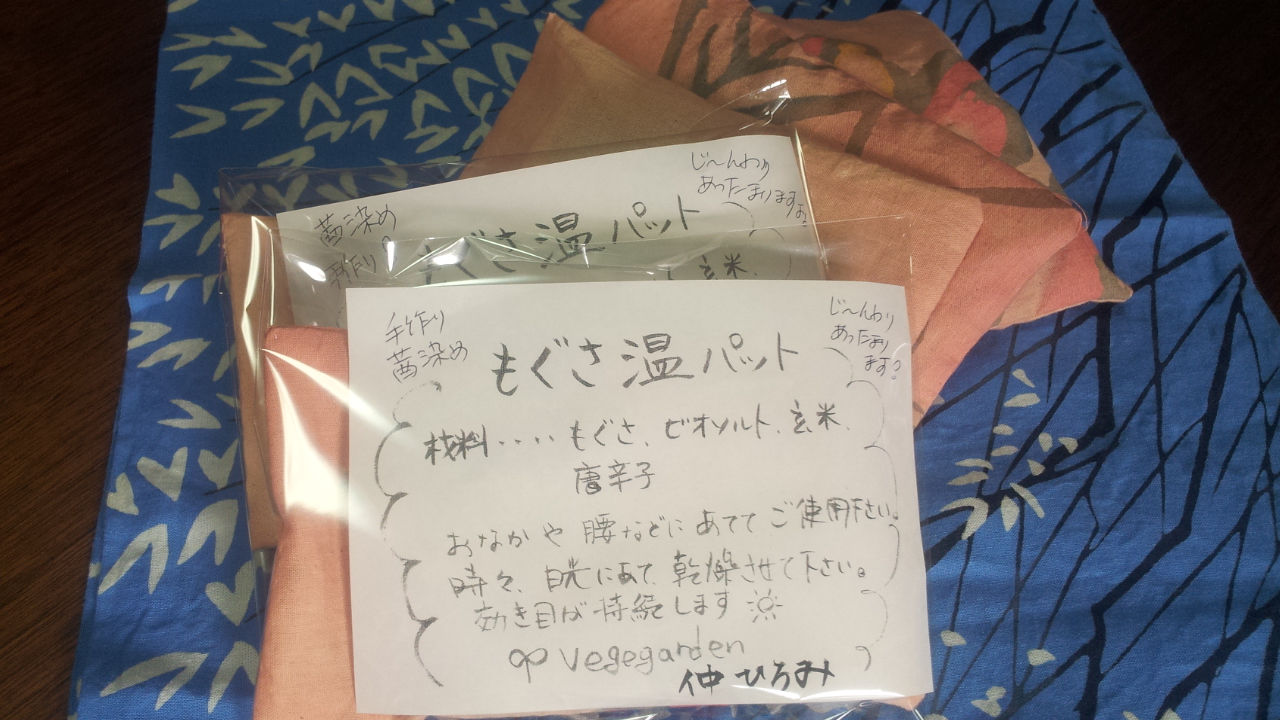 じ〜んわり
あったーまりますよ
茜染め
手作り
もぐさ温パット
玄米.
手作り
茜染め
じ〜んわり
あったまり
ます?
もぐさ温パット
材料‥‥もぐさ、ビオソルト、玄米、
唐辛子
おなかや腰などにあててご使用下さい。
時々、日光にあて、乾燥させて下さい。
効き目が持続します
vegegarden
仲ひろみ